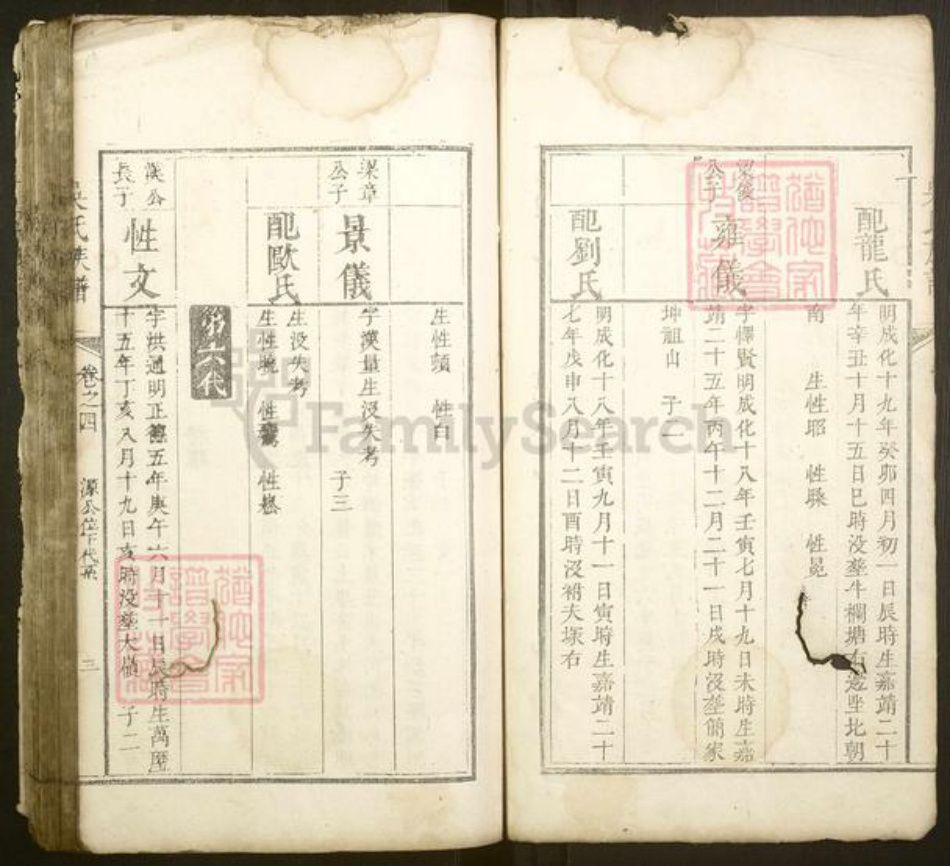 配龍氏
明成化十九年癸卯四月初一日辰時生嘉靖二十
年辛丑十月十五日巳時没塟牛欄塘右邊坐北朝
南 生性昭 性縣 性晃
公子
雍儀
字懌賢明成化十八年壬寅七月十九日未時生嘉
靖二十五年丙午十二月二十一日戌時没塟簡家
坤祖山 子二
配劉氏
明成化十八年壬寅九月十一日寅時生嘉靖二十
七年戊申八月十二日酉時没祔夫塚右
生性頭 性白
梁章
公子
景儀
字漢量生没失考 子三
配歐氏
生没失考
生性 性 性
第六代
漢公
長子
性文
字洪通明正德五年庚午六月十一日辰時生萬歷
十五年丁亥八月十九日亥時没塟大嶺 子二
吳氏族譜
卷之四
源公位下代系
三
FamilySearch